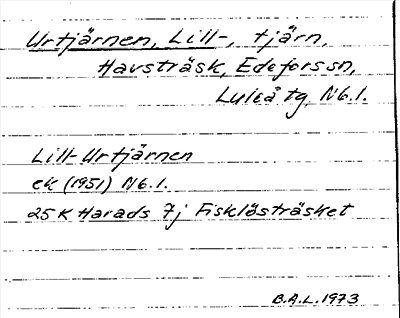 Urtjärnen, Lill-, tjärn,
Havsträsk, Edeforssn,
Luleå tg, Nb.l.
Lill-Urtjärnen
ek (1951) Nb.l.
25K Harads 7j Fisklösträsket
B.A.L. 1973